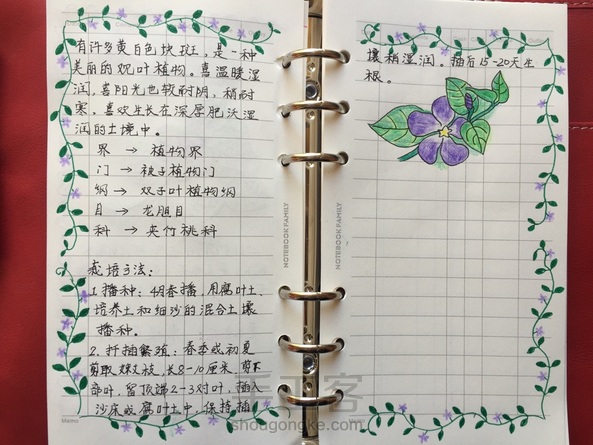 有许多黄白色块斑，是一种
美丽的观叶植物。喜温暖湿
润，喜阳光也较耐阴，稍耐
寒。喜欢生长在深厚肥沃湿
润的土境中。
界 → 植物界
门 → 被子植物门
纲 → 双子叶植物纲
目 → 龙胆目
科 → 夹竹桃科
栽培方法：
1.播种：4月春播，用腐叶土、
培养土和细沙的混合土壤
播种。
2.扦插繁殖：春季或初夏
剪取嫩枝，长8-10厘米，剪下
部叶，留顶端2-3对叶，插入
沙床或腐叶土中，保持插
Memo
NOTEBOOK FAMILY
NOTEBOOK FAMILY
壤稍湿润。插后15-20天生
根。
手工客
shougongke.com